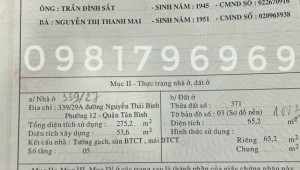 ÔNG : TRẦN ĐÌNH SẮT - SINH NĂM : 1945 - CMND SỐ : 022670916
BÀ : NGUYỄN THỊ THANH MAI - SINH NĂM : 1951 - CMND SỐ : 020965938
0981796969
Mục II - Thực trạng nhà ở, đất ở
a/ Nhà ở 339/27
Địa chỉ : 339/29A đường Nguyễn Thái Bình
Phường 12 - Quận Tân Bình
Tổng diện tích sử dụng : 275,2 m2
Diện tích xây dựng : 53,6 m2
Kết cấu nhà : Tường gạch, sàn BTCT , mái BTCT
Số tầng : 05
b/ Đất ở
Thửa đất số : 371
Tờ bản đồ số : 03 (Sơ đồ nền)
Diện tích : 65,2 m2
Hình thức sử dụng :
Riêng 65,2 m2
Chung m2